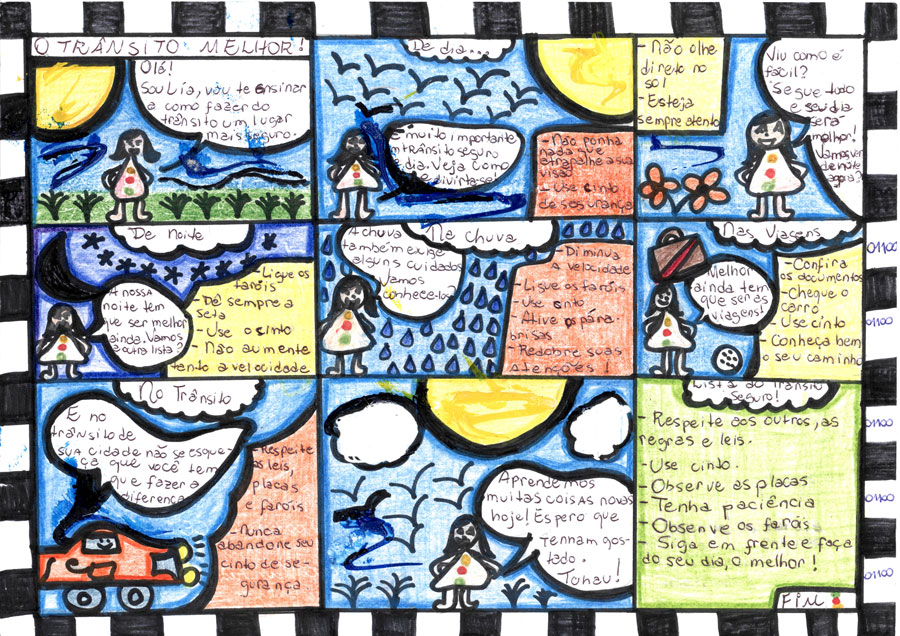 O TRÂNSITO MELHOR!
Olá!
Sou Lia, vou te ensinar
a como fazer do
trânsito um lugar
mais seguro.
De dia...
É muito importante
trânsito seguro
dia. Veja como
e divirta-se!
- Não ponha
nada que
atrapalhe a sua
visão
- Use cinto
de segurança
- Não olhe
direto no
sol
- Esteja
sempre atento
Viu como é
fácil?
Segue tudo
e seu dia
será
melhor!
Vamos ver
de noite
agora?
De Noite
A nossa
noite tem
que ser melhor
ainda. Vamos
a outra lista?
- Ligue os
faróis
- Dê sempre a
seta
- Use o cinto
- Não aumente
tanto a velocidade
Na Chuva
A chuva
também exige
alguns cuidados
Vamos
conhece-los?
- Diminua
a velocidade
- Ligue os faróis.
- Use cinto
- Ative os pára-
brisas
- Redobre suas
atenções!
Nas Viagens
Melhor
ainda tem
que ser as
viagens!
- Confira
os documentos
- Cheque o
carro
- Use cinto
- Conheça bem
o seu caminho
No Trânsito
E no
trânsito de
sua cidade não se esque-
ça que você tem
que fazer a
diferença
- Respeite
as leis,
placas
e faróis
- Nunca
abandone seu
cinto de se-
gurança
Aprendemos
muitas coisas novas
hoje! Espero que
tenham gos-
tado.
Tchau!
Lista do Trânsito
Seguro!
- Respeite aos outros, as
regras e leis.
- Use cinto.
- Observe as placas
- Tenha paciência
- Observe os faróis
- Siga em frente e faça
do seu dia, o melhor!
FIM